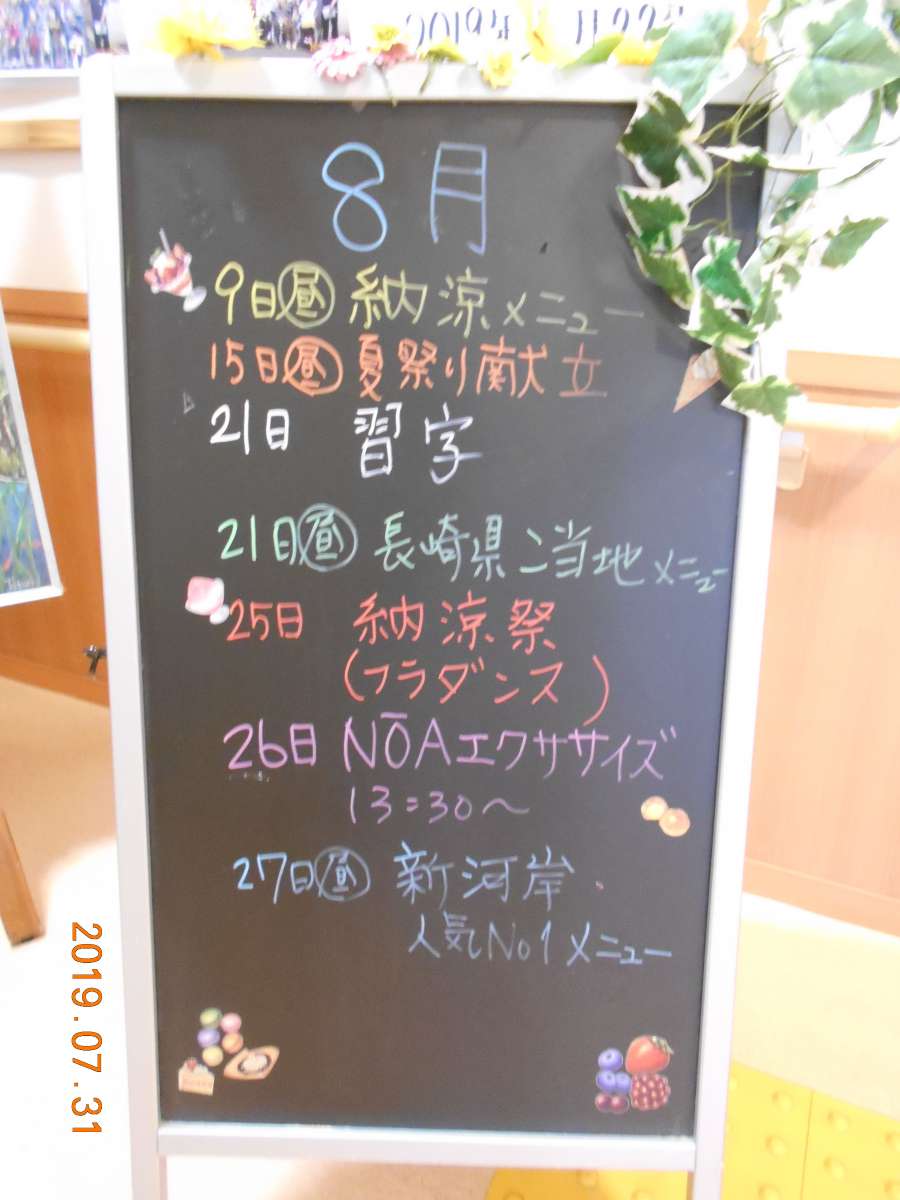 8月
9日 昼 納涼メニュー
15日 昼 夏祭り献立
21日 習字
21日 昼 長崎県ご当地メニュー
25日 納涼祭
(フラダンス)
26日 NŌAエクササイズ
13:30〜
27日 昼 新河岸
人気No1メニュー
2019.07.31